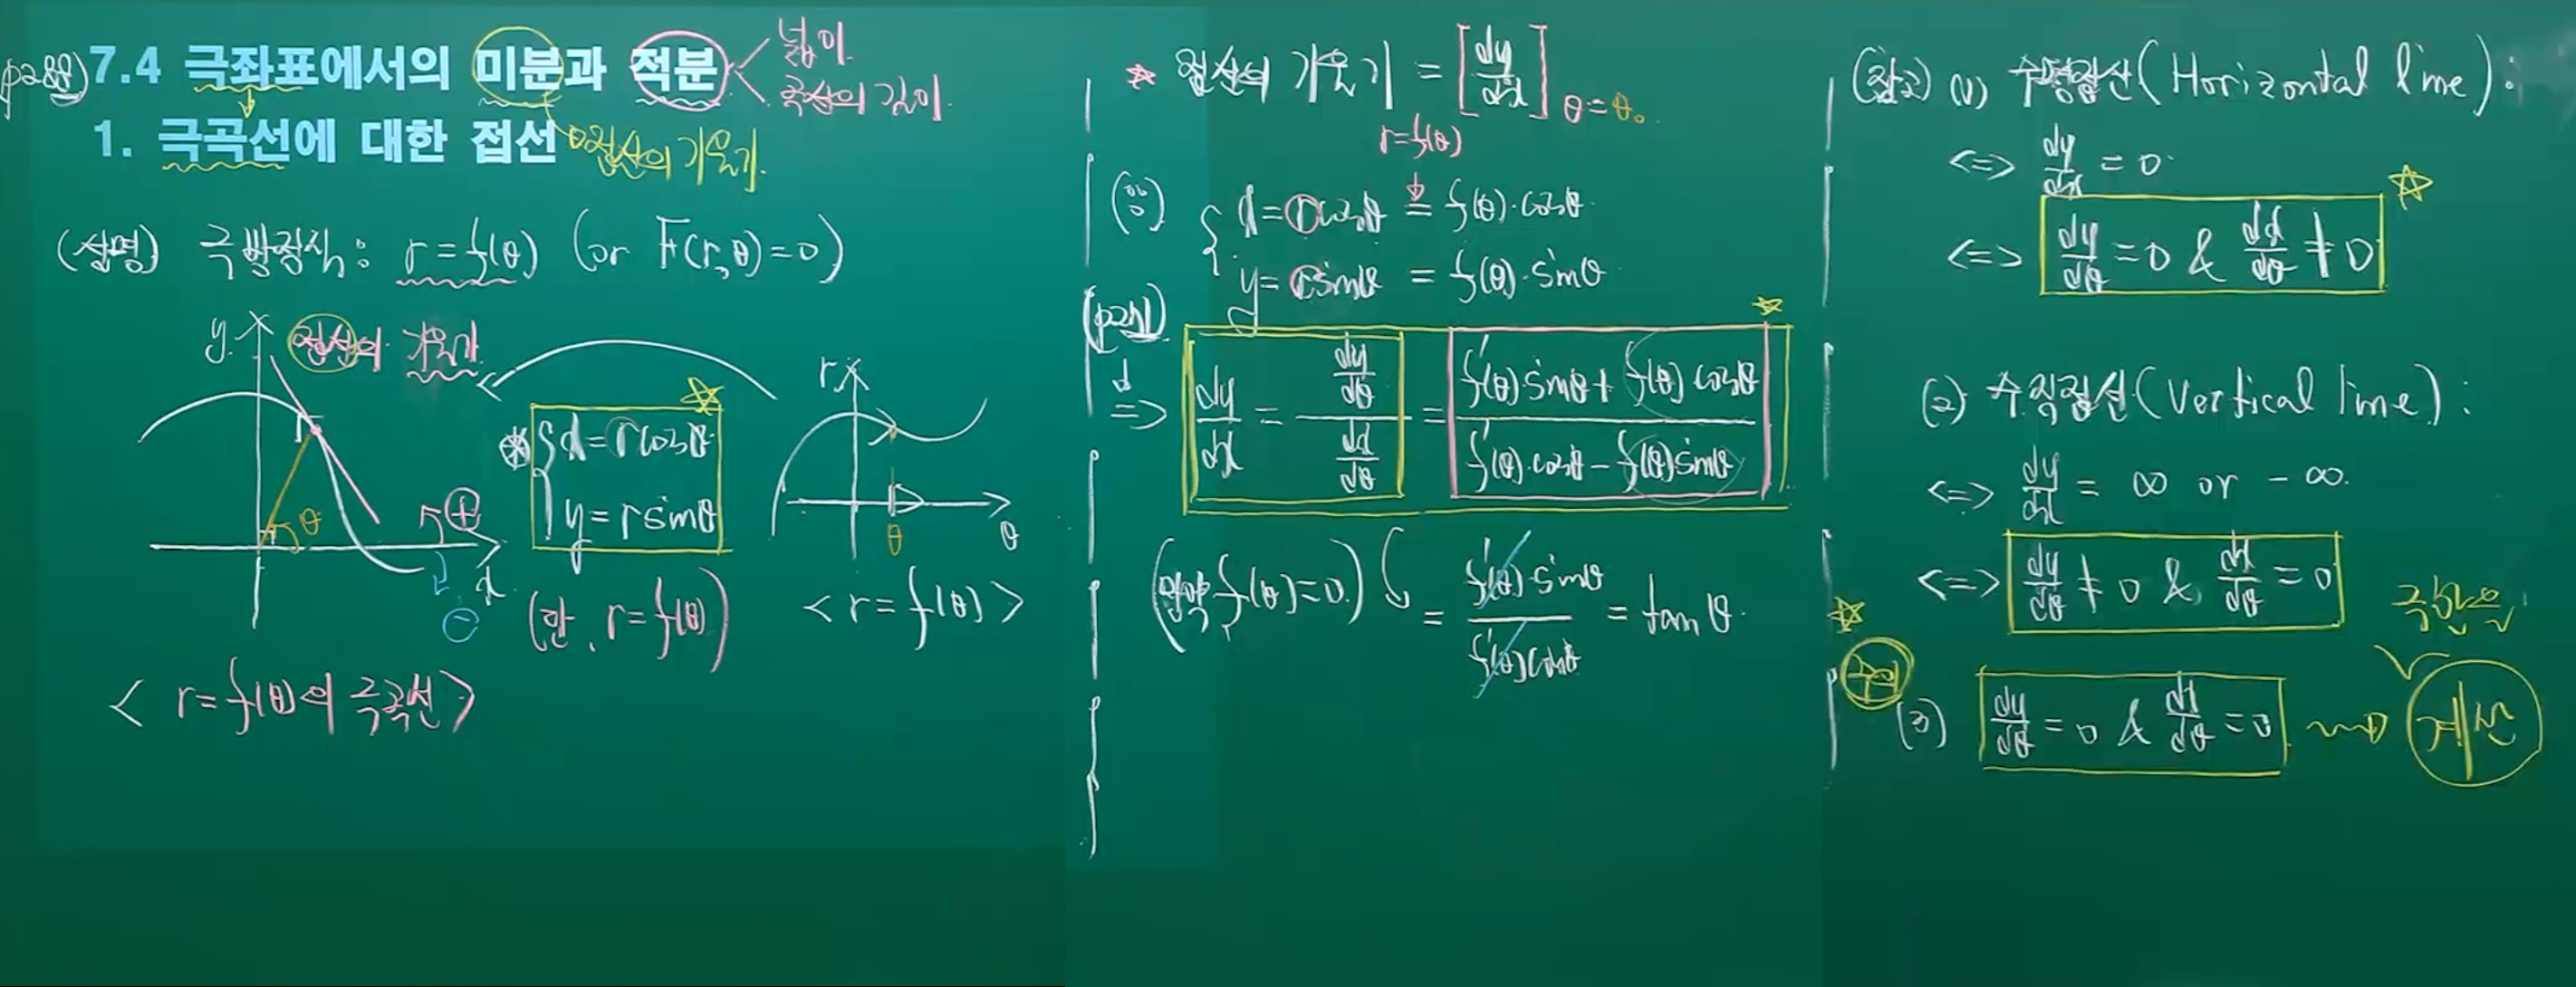 (p288) 7.4 극좌표에서의 미분과 적분 < 넓이. 곡선의 길이.
1. 극곡선에 대한 접선 → 접선의 기울기.
(설명) 극방정식: r=f(θ) (or F(r,θ)=0)
y
접선의 기울기
θ
+
x
−
⊛ { x=rcosθ
y=rsinθ
(단, r=f(θ))
r
θ
θ
<r=f(θ)>
<r=f(θ)의 극곡선>
☆ 접선의 기울기 = [dy/dx] θ=θ₀
r=f(θ)
(∵) { x=rcosθ = f(θ)·cosθ
y=rsinθ = f(θ)·sinθ
⇒ dy/dx = (dy/dθ)/(dx/dθ) = (f'(θ)·sinθ+f(θ)cosθ)/(f'(θ)·cosθ−f(θ)sinθ)
(만약 f(θ)=0.) = (f'(θ)·sinθ)/(f'(θ)cosθ) = tanθ.
(참고) (1) 수평접선(Horizontal line):
<=> dy/dx = 0
<=> dy/dθ=0 & dx/dθ≠0 ☆
(2) 수직접선(Vertical line):
<=> dy/dx = ∞ or −∞.
<=> dy/dθ≠0 & dx/dθ=0
☆ 주의 (3) dy/dθ=0 & dx/dθ=0 → 극한을 계산